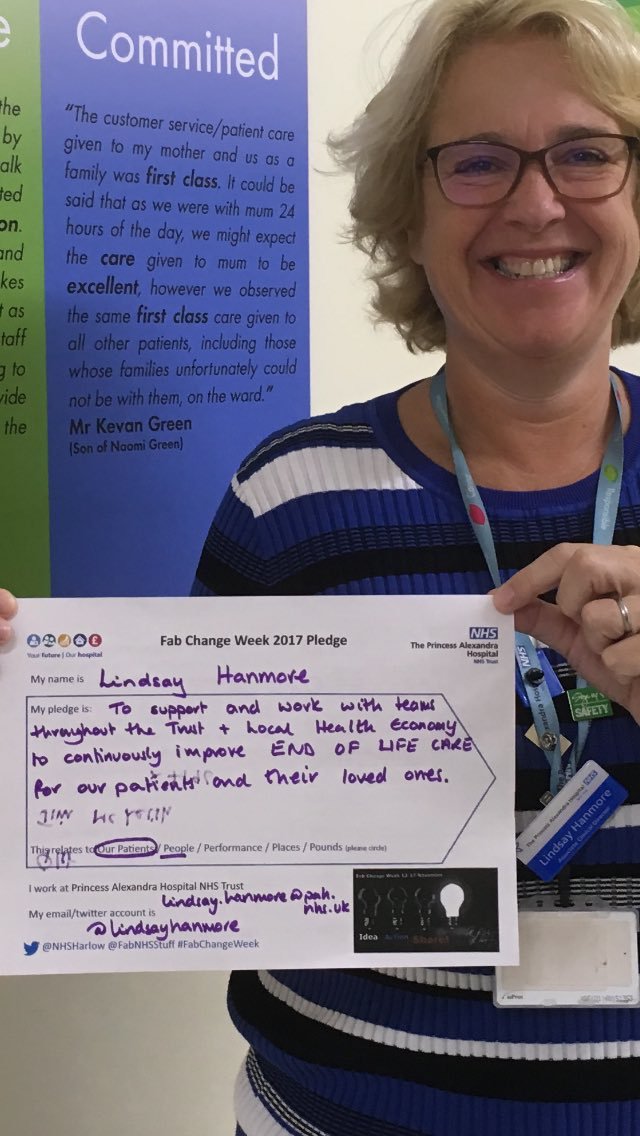 e
the
by
alk
ted
on.
and
kes
t as
taff
g to
vide
the
Committed
"The customer service/patient care
given to my mother and us as a
family was first class. It could be
said that as we were with mum 24
hours of the day, we might expect
the care given to mum to be
excellent, however we observed
the same first class care given to
all other patients, including those
whose families unfortunately could
not be with them, on the ward."
Mr Kevan Green
(Son of Naomi Green)
Responsible
Caring
Your Future | Our hospital
Fab Change Week 2017 Pledge
NHS
The Princess Alexandra
Hospital
NHS Trust
My name is Lindsay Hanmore
My pledge is: To support and work with teams
throughout the Trust + Local Health Economy
to continuously improve END OF LIFE CARE
for our patients and their loved ones.
This relates to Our Patients / People / Performance / Places / Pounds (please circle)
I work at Princess Alexandra Hospital NHS Trust
Lindsay.hanmore@pah.
nhs.uk
My email/twitter account is
@lindsayhanmore
@NHSHarlow @FabNHSStuff #FabChangeWeek
Fab Change Week 13-17 November
Idea Action Share!
NHS
Sign up to
SAFETY
The Princess Alexandra Hospital NHS
Lindsay Hanmore